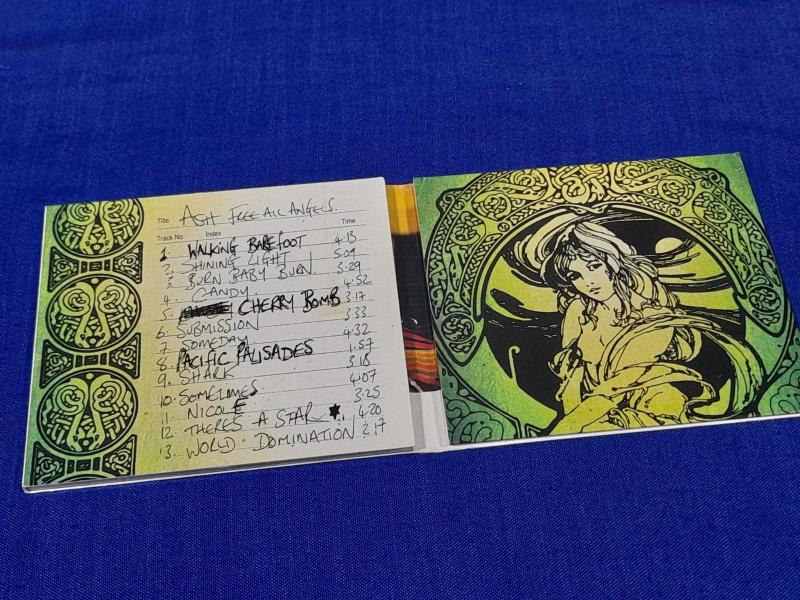 Title ASH FREE ALL ANGELS.
Track No. Index Time
1. WALKING BAREFOOT 4.13
2. SHINING LIGHT 5.09
3. BURN BABY BURN 3.29
4. CANDY. 4.52
5. CHERRY BOMB 3.17
6. SUBMISSION 3.33
7. SOMEDAY. 4.32
8. PACIFIC PALISADES 1.57
9. SHARK 3.18
10. SOMETIMES 4.07
11. NICOLE 3.25
12. THERE'S A STAR ★. 4.20
13. WORLD DOMINATION 2.17